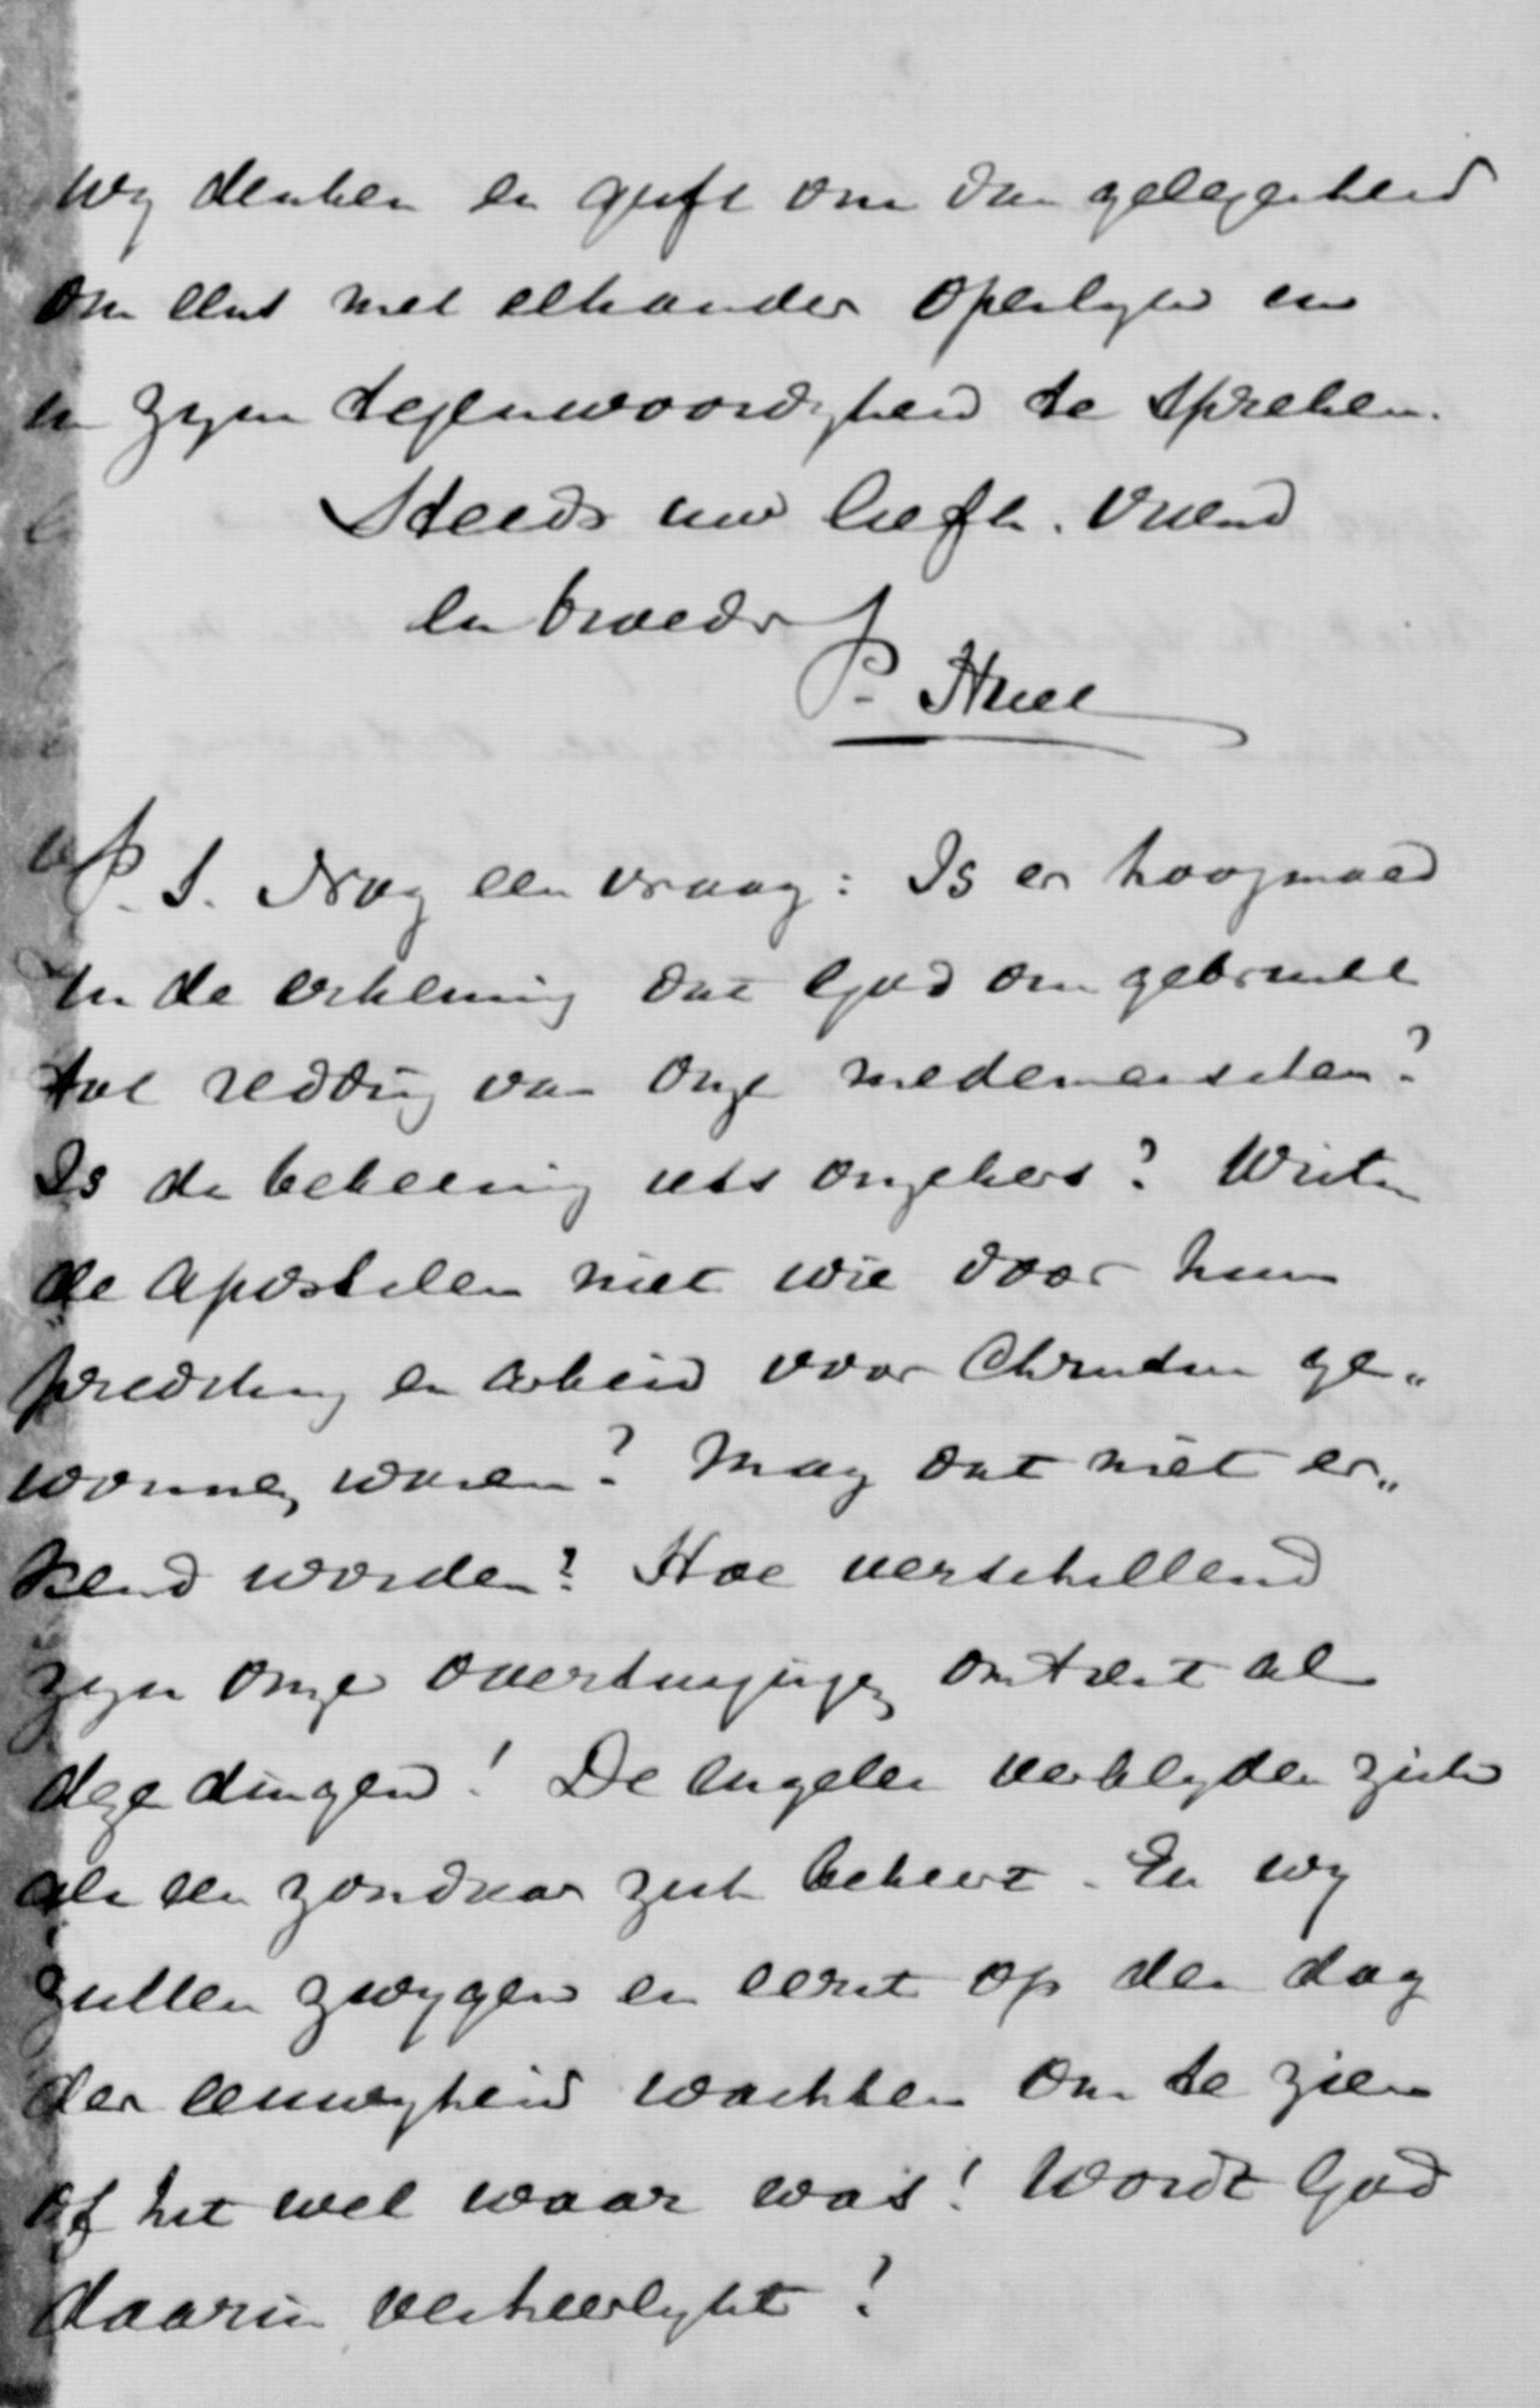 wy denken en geeft ons dan gelegenheid
om eens met elkander openlyk en
in zyn tegenwoordigheid te spreken.
Steeds uw liefh. vriend
en broeder
P. Huet
P. S. Nog een vraag: Is er hoogmoed
in de erkenning dat God ons gebruikt
tot redding van onze medemenschen?
Is de bekeering iets onzekers? Wisten
de Apostelen niet wie door hun
prediking en arbeid voor Christus ge„
wonnen waren? Mag dat niet er„
kend worden? Hoe verschillend
zyn onze overtuigingen omtrent al
deze dingen! De Engelen verblyden zich
als een zondaar zich bekeert. En wy
zullen zwygen en eerst op den dag
der eeuwigheid wachten om te zien
of het wel waar was! Wordt God
daarin verheerlykt?